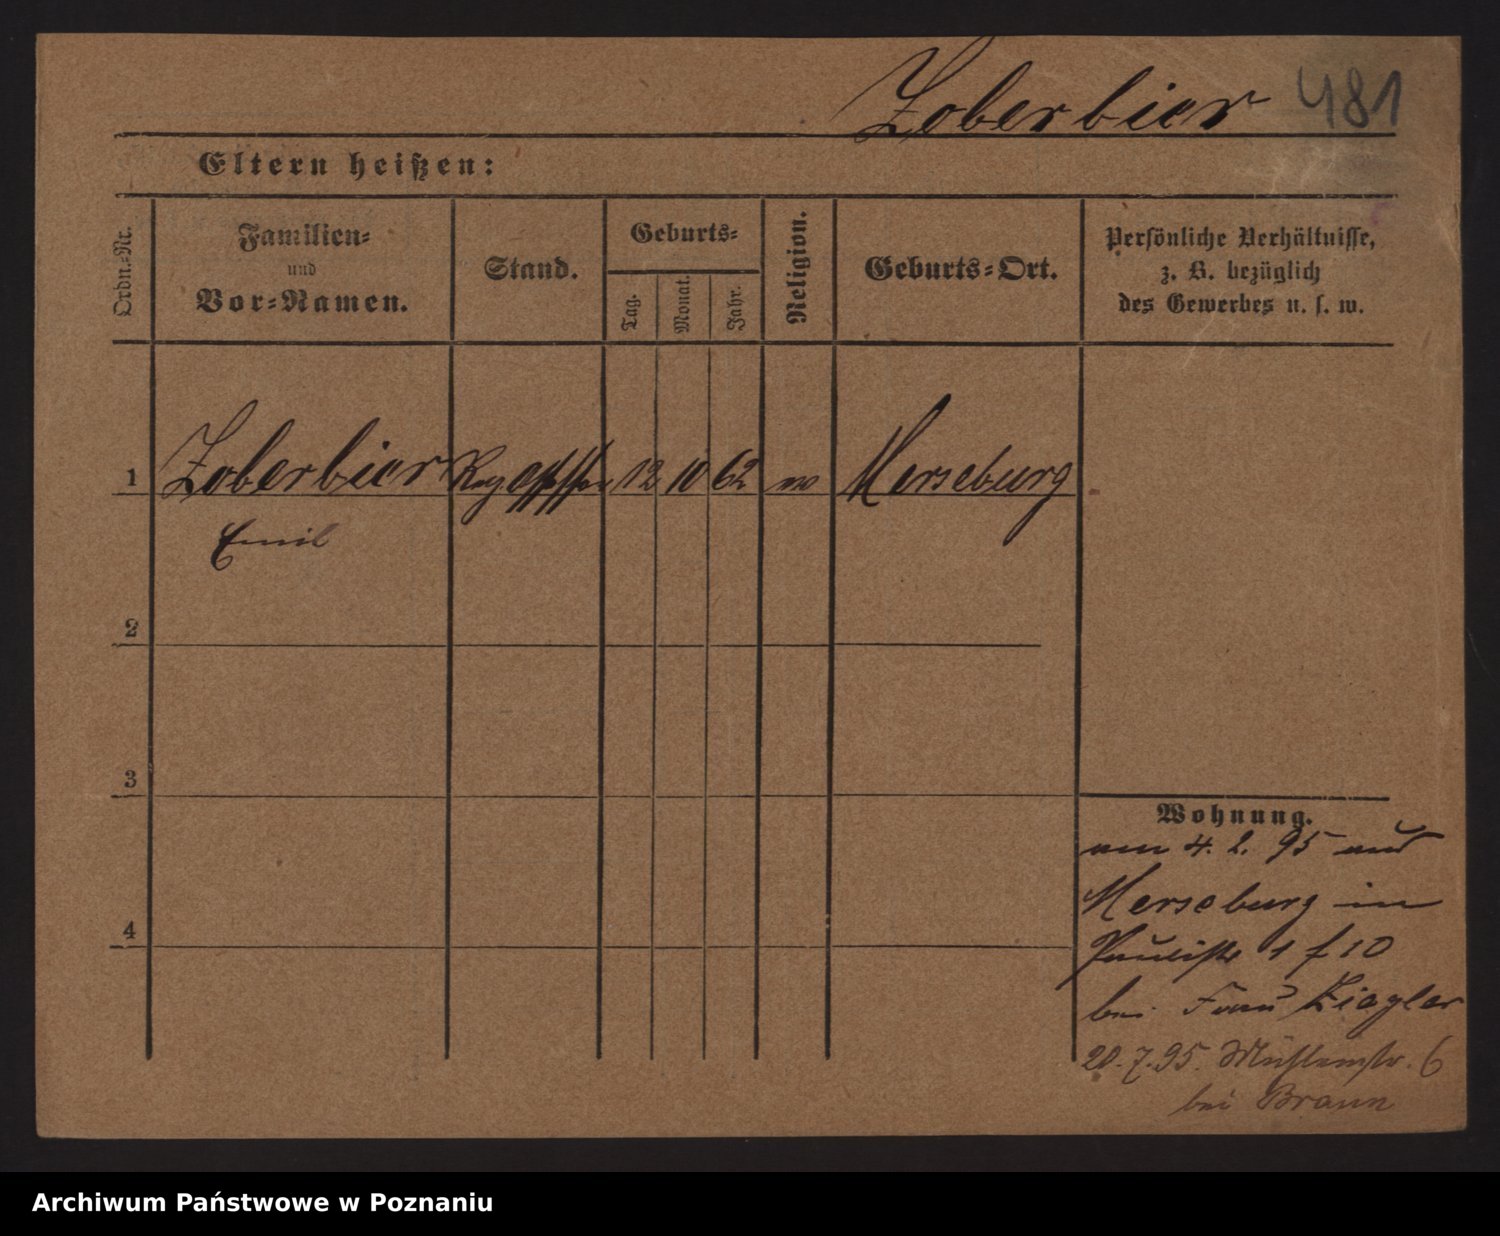 Zoberbier 481
Eltern heißen:
Ordn.-Nr.
Familien-
und
Vor-Namen.
Stand.
Geburts-
Tag.
Monat.
Jahr.
Religion.
Geburts-Ort.
Persönliche Verhältnisse,
z. B. bezüglich
des Gewerbes u. s. w.
1 Zoberbier 12 10 62 Merseburg
Emil
2
3
4
Wohnung.
am 4. 2. 95 aus
Merseburg in
1 f 10
bei Frau Ziegler
20. 7. 95. Mühlenstr. 6
bei Braun
Archiwum Państwowe w Poznaniu